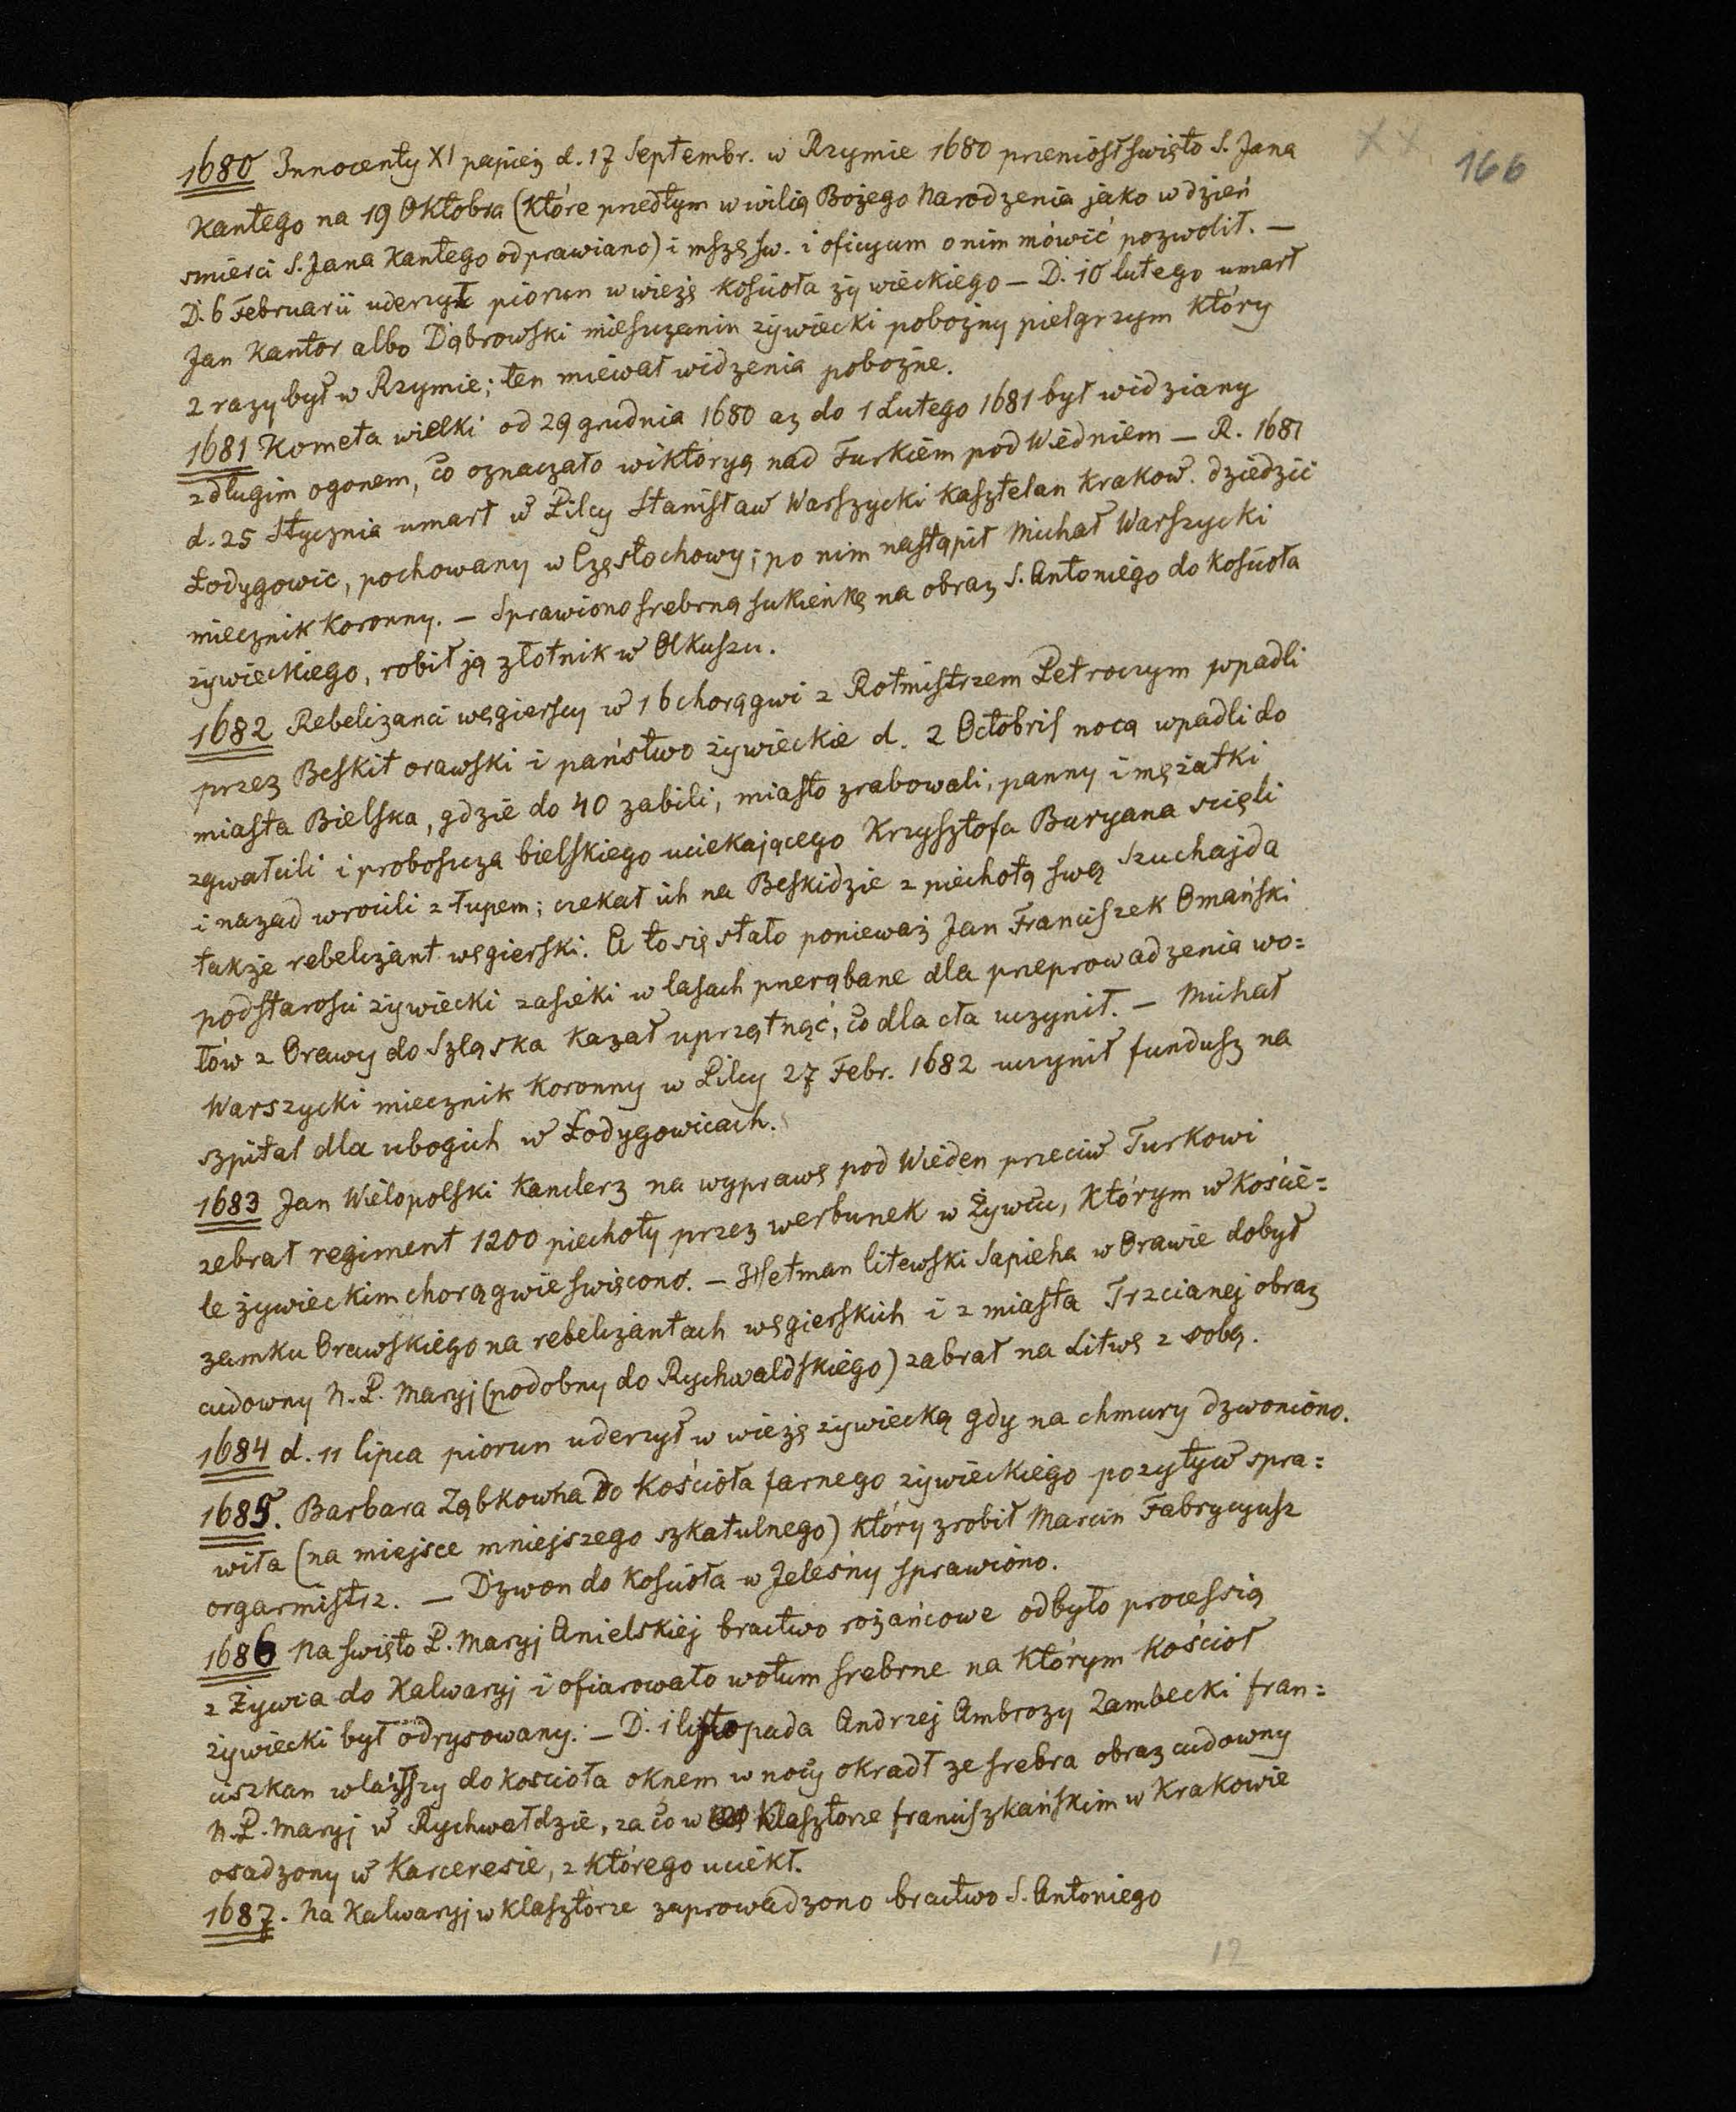 XX. 166
1680 Innocenty XI papież d. 17 Septembr. w Rzymie 1680 przeniósł święto S. Jana
Kantego na 19 Oktobra (które przedtym w wilią Bożego Narodzenia jako w dzień
smierci S. Jana Kantego odprawiano) i mszę św. i oficyum o nim mówić pozwolił. —
D. 6 Februarii uderzył piorun w wieżę kosciota żywieckiego — D. 10 lutego umarł
Jan Kantor albo Dąbrowski miesczanin żywiecki pobożny pielgrzym który
2 razy był w Rzymie; ten miewał widzenia pobożne.
1681 Kometa wielki od 29 grudnia 1680 aż do 1 Lutego 1681 był widziany
z długim ogonem, co oznaczało wiktoryą nad Turkiem pod Wiedniem — R. 1681
d. 25 Stycznia umarł w Pilcy Stanisław Warszycki kasztelan krakow. dziedzic
Łodygowic, pochowany w Częstochowy; po nim nastąpił Michał Warszycki
miecznik koronny. — Sprawiono srebrną sukienkę na obraz S. Antoniego do kościoła
żywieckiego, robił ją złotnik w Olkuszu.
1682 Rebelizanci węgierscy w 16 chorągwi z Rotmistrzem Petroczym wpadli
przez Beskit orawski i państwo żywieckie d. 2 Octobris nocą wpadli do
miasta Bielska, gdzie do 40 zabili, miasto zrabowali, panny i mężatki
zgwałcili i proboscza bielskiego uciekającego Krzysztofa Buryana scięli
i nazad wrocili z łupem; czekał ich na Beskidzie z piechotą swą Szuchajda
także rebelizant węgierski. A to się stało ponieważ Jan Franciszek Omański
podstarości żywiecki zasieki w lasach przerąbane dla przeprowadzenia wo=
łów z Orawy do Szląska kazał uprzątnąć, co dla cła uczynił. — Michał
Warszycki miecznik koronny w Pilcy 27 Febr. 1682 uczynił fundusz na
szpital dla ubogich w Łodygowicach.
1683 Jan Wielopolski kanclerz na wyprawę pod Wieden przeciw Turkowi
zebrał regiment 1200 piechoty przez werbunek w Żywcu, którym w koście=
le żywieckim chorągwie swięcono. — Hetman litewski Sapieha w Orawie dobył
zamku Orawskiego na rebelizantach węgierskich i z miasta Trzcianej obraz
cudowny N. P. Maryj (podobny do Rychwaldskiego) zabrał na Litwę z sobą.
1684 d. 11 lipca piorun uderzył w wieżę żywiecką gdy na chmury dzwoniono.
1685. Barbara Ząbkowna do kościoła farnego żywieckiego pozytyw spra=
wiła (na miejsce mniejszego szkatulnego) który zrobił Marcin Fabrycyusz
orgarmistrz. — Dzwon do kościoła w Jeleśny sprawiono.
1686 Na święto P. Maryj Anielskiej bractwo rożańcowe odbyło processią
z Żywca do Kalwaryj i ofiarowało wotum srebrne na którym kościoł
żywiecki był odrysowany. — D. 1 listopada Andrzej Ambrozy Zambecki fran=
ciszkan wlazszy do koscioła oknem w nocy okradł ze srebra obraz cudowny
N. P. Maryj w Rychwałdzie, za co w klasztorze franciszkańskim w Krakowie
osadzony w karceresie, z którego uciekł.
1687. Na Kalwaryj w klasztorze zaprowadzono bractwo S. Antoniego
12